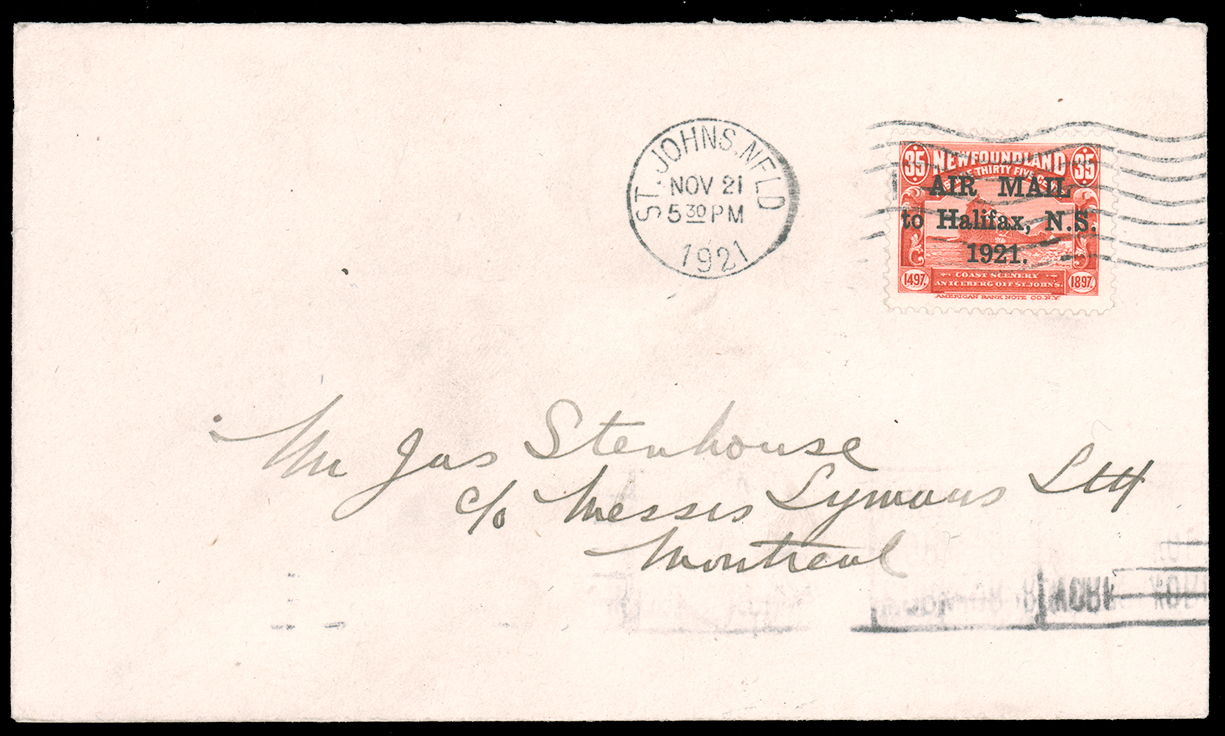 ST. JOHNS, NFLD
NOV 21
5 30 PM
1921
35 NEWFOUNDLAND 35
THIRTY FIVE
AIR MAIL
to Halifax, N.S.
1921.
1497 COAST SCENERY 1897
AN ICEBERG OFF ST. JOHN'S.
AMERICAN BANK NOTE CO. N.Y.
Mr Jas Stenhouse
c/o Messrs Lymans Ltd
Montreal